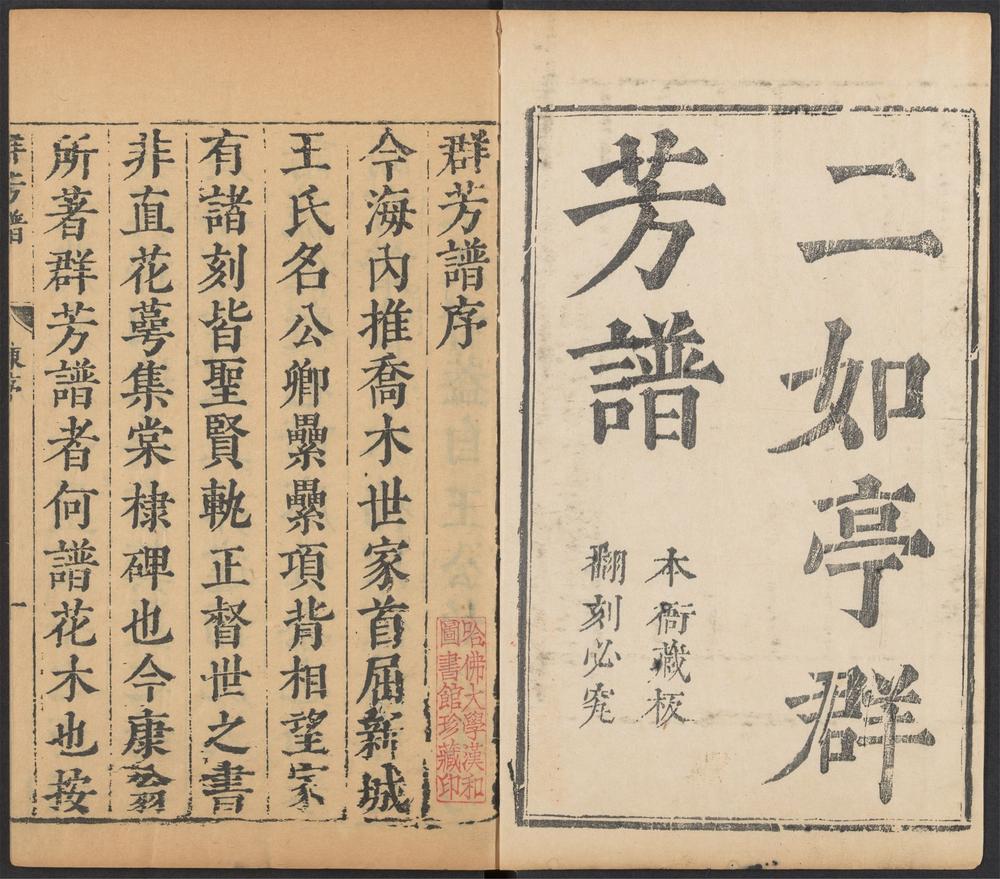 二如亭群
芳譜
本衙藏板
翻刻必究
群芳譜序
哈佛大學漢和
圖書館珍藏印
今海內推喬木世家首屈新城
王氏名公卿纍纍項背相望家
有諸刻皆聖賢軌正督世之書
非直花萼集棠棣碑也今康翁
所著群芳譜者何譜花木也按
群芳譜
一